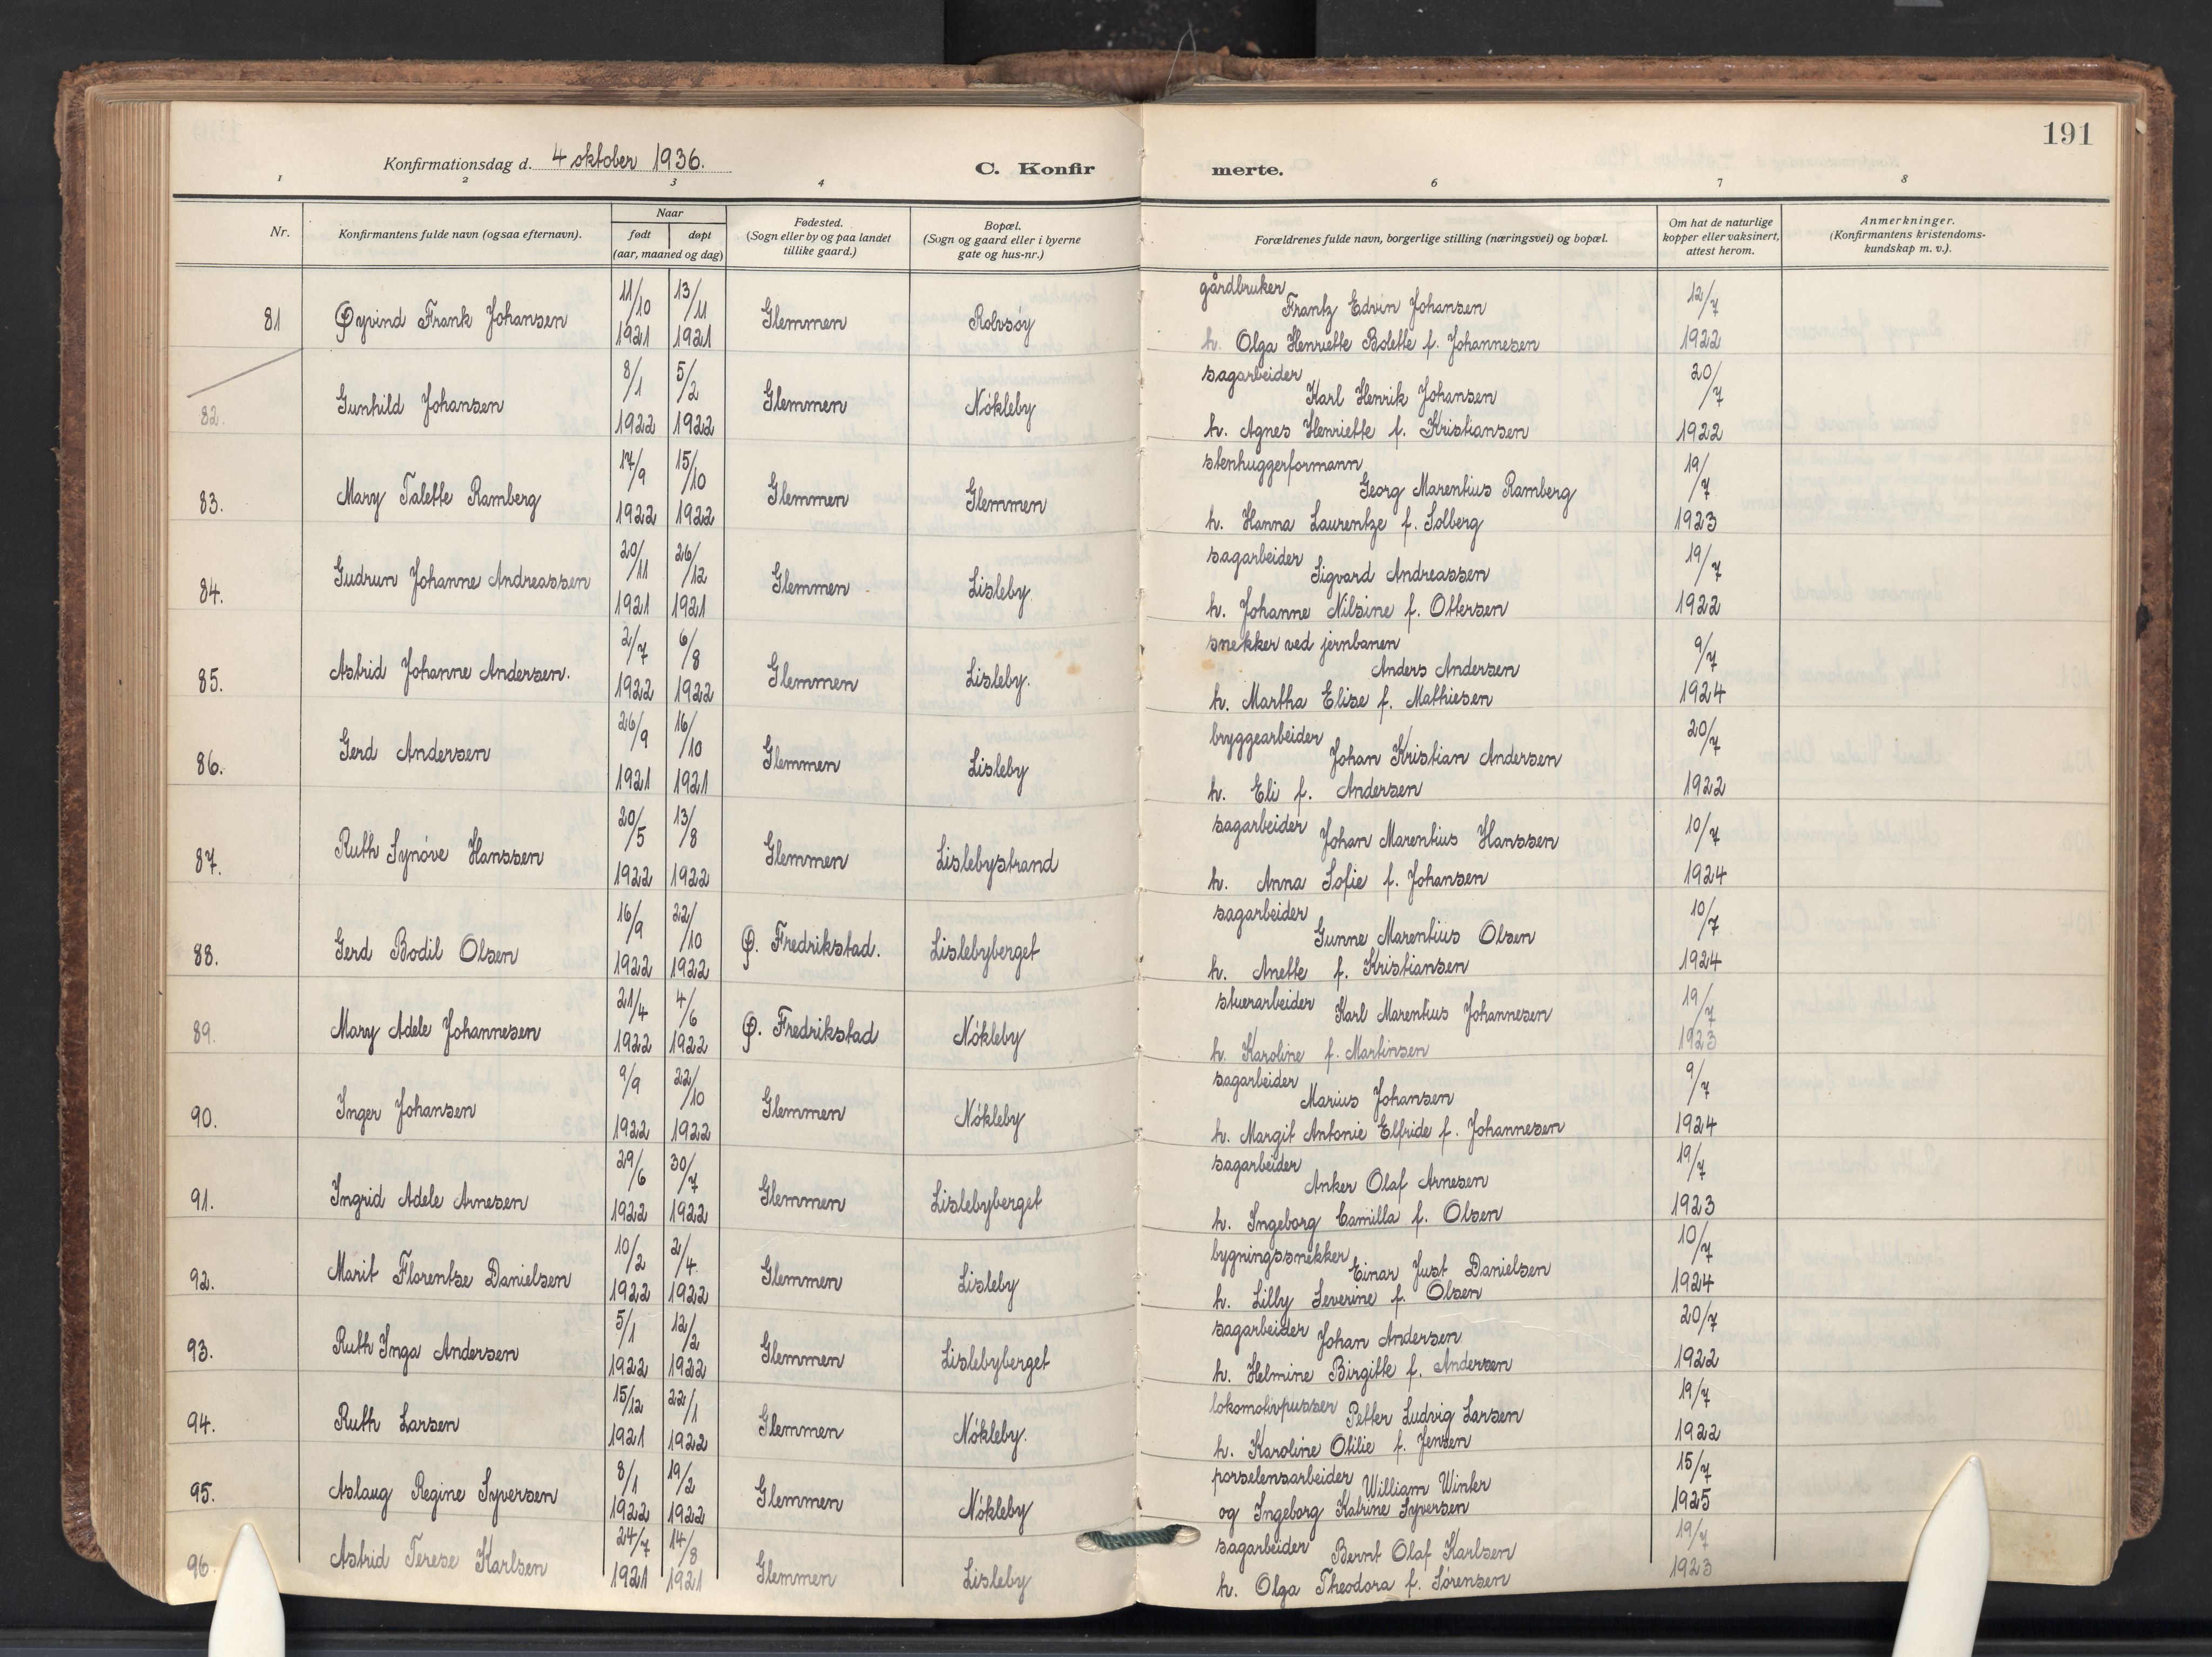 191
Konfirmationsdag d. 4 oktober 1936.
C. Konfirmerte.
1 2 3 4 6 7 8
Nr.
Konfirmantens fulde navn (ogsaa efternavn).
Naar
født døpt
(aar, maaned og dag)
Fødested.
(Sogn eller by og paa landet
tillike gaard.)
Bopæl.
(Sogn og gaard eller i byerne
gate og hus-nr.)
Forældrenes fulde navn, borgerlige stilling (næringsvei) og bopæl.
Om hat de naturlige
kopper eller vaksinert,
attest herom.
Anmerkninger.
(Konfirmantens kristendoms-
kundskap m. v.).
gårdbruker
81 Øyvind Frank Johansen 11/10 1921 13/11 1921 Glemmen Rolvsøy Frantz Edvin Johansen 12/7
h. Olga Henriette Bolette f. Johannesen 1922
sagarbeider
82. Gunhild Johansen 8/1 1922 5/2 1922 Glemmen Nökleby Karl Henrik Johansen 20/7
h. Agnes Henriette f. Kristiansen 1922
stenhuggerformann
83. Mary Talette Ramberg 17/9 1922 15/10 1922 Glemmen Glemmen Georg Marentius Ramberg 19/7
h. Hanna Laurentze f. Solberg 1923
sagarbeider
84. Gudrun Johanne Andreassen 20/11 1921 26/12 1921 Glemmen Lisleby. Sigvard Andreassen 19/7
h. Johanne Nilsine f. Ottersen 1922
snekker ved jernbanen
85. Astrid Johanne Andersen. 2/7 1922 6/8 1922 Glemmen Lisleby. Anders Andersen 9/7
h. Martha Elise f. Mathiesen 1924
bryggearbeider
86. Gerd Andersen 26/9 1921 16/10 1921 Glemmen Lisleby Johan Kristian Andersen 20/7
h. Eli f. Andersen 1922
sagarbeider
87. Ruth Synöve Hanssen 20/5 1922 13/8 1922 Glemmen Lislebystrand Johan Marentius Hanssen 10/7
h. Anna Sofie f. Johansen 1924
sagarbeider
88. Gerd Bodil Olsen 16/9 1922 22/10 1922 Ø. Fredrikstad. Lislebyberget Gunne Marentius Olsen 10/7
h. Anette f. Kristiansen 1924
stuerarbeider
89. Mary Adele Johannesen 21/4 1922 4/6 1922 Ø. Fredrikstad Nökleby Karl Marentius Johannesen 19/7
h. Karoline f. Martinsen 1923
sagarbeider
90. Inger Johansen 9/9 1922 22/10 1922 Glemmen Nökleby Marius Johansen 9/7
h. Margit Antonie Elfride f. Johannesen 1924
sagarbeider
91. Ingrid Adele Arnesen 29/6 1922 30/7 1922 Glemmen Lislebyberget Anker Olaf Arnesen 19/7
h. Ingeborg Camilla f. Olsen 1923
bygningssnekker
92. Marit Florentse Danielsen 10/2 1922 2/4 1922 Glemmen Lisleby Einar Just Danielsen 10/7
h. Lilly Severine f. Olsen 1924
sagarbeider
93. Ruth Inga Andersen 5/1 1922 12/2 1922 Glemmen Lislebyberget Johan Andersen 20/7
h. Helmine Birgitte f. Andersen 1922
lokomotivpusser
94. Ruth Larsen 15/12 1921 22/1 1922 Glemmen Nökleby. Petter Ludvig Larsen 19/7
h. Karoline Otilie f. Jensen 1922
porselensarbeider
95. Aslaug Regine Syversen 8/1 1922 19/2 1922 Glemmen Nökleby William Winter 15/7
og Ingeborg Katrine Syversen 1925
sagarbeider
96. Astrid Terese Karlsen 24/7 1921 14/8 1921 Glemmen Lisleby Bernt Olaf Karlsen 19/7
h. Olga Theodora f. Sörensen 1923